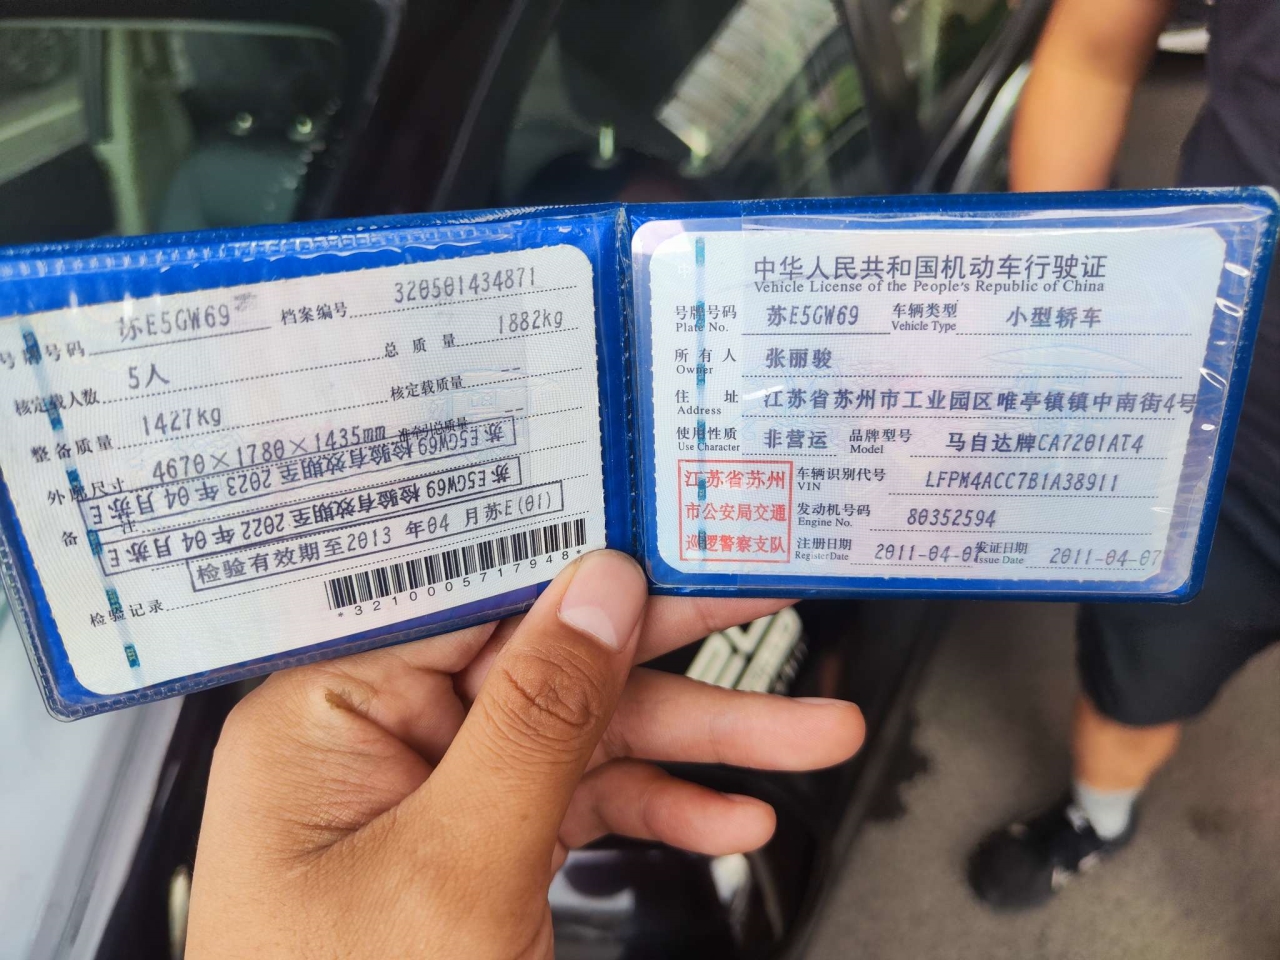 号牌号码 苏E5GW69 档案编号 320501434871
核定载人数 5人 总质量 1882kg
整备质量 1427kg 核定载质量 --
外廓尺寸 4670×1780×1435mm 准牵引总质量 --
备
苏E5GW69 检验有效期至2023年04月苏E
苏E5GW69 检验有效期至2022年04月苏E
检验有效期至2013 年04 月苏E(01)
检验记录
*3210005717948*
中华人民共和国机动车行驶证
Vehicle License of the People's Republic of China
号牌号码 苏E5GW69 车辆类型 小型轿车
Plate No. Vehicle Type
所有人 张丽骏
Owner
住址 江苏省苏州市工业园区唯亭镇镇中南街4号
Address
使用性质 非营运 品牌型号 马自达牌CA7201AT4
Use Character Model
江苏省苏州
市公安局交通
巡逻警察支队
车辆识别代号 LFPM4ACC7B1A38911
VIN
发动机号码 80352594
Engine No.
注册日期 2011-04-07 发证日期 2011-04-07
Register Date Issue Date